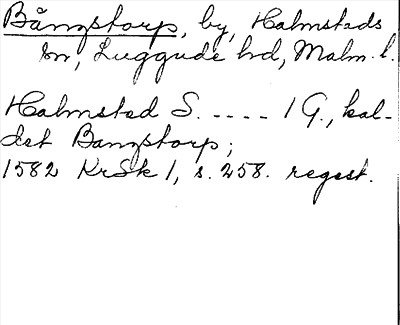 Bångstorp, by, Halmstads
sn, Luggude hd, Malm. l.
Halmstad S. .... 1 G., kal-
det Bangstorp;
1582 KrSk 1, s. 258. regest.